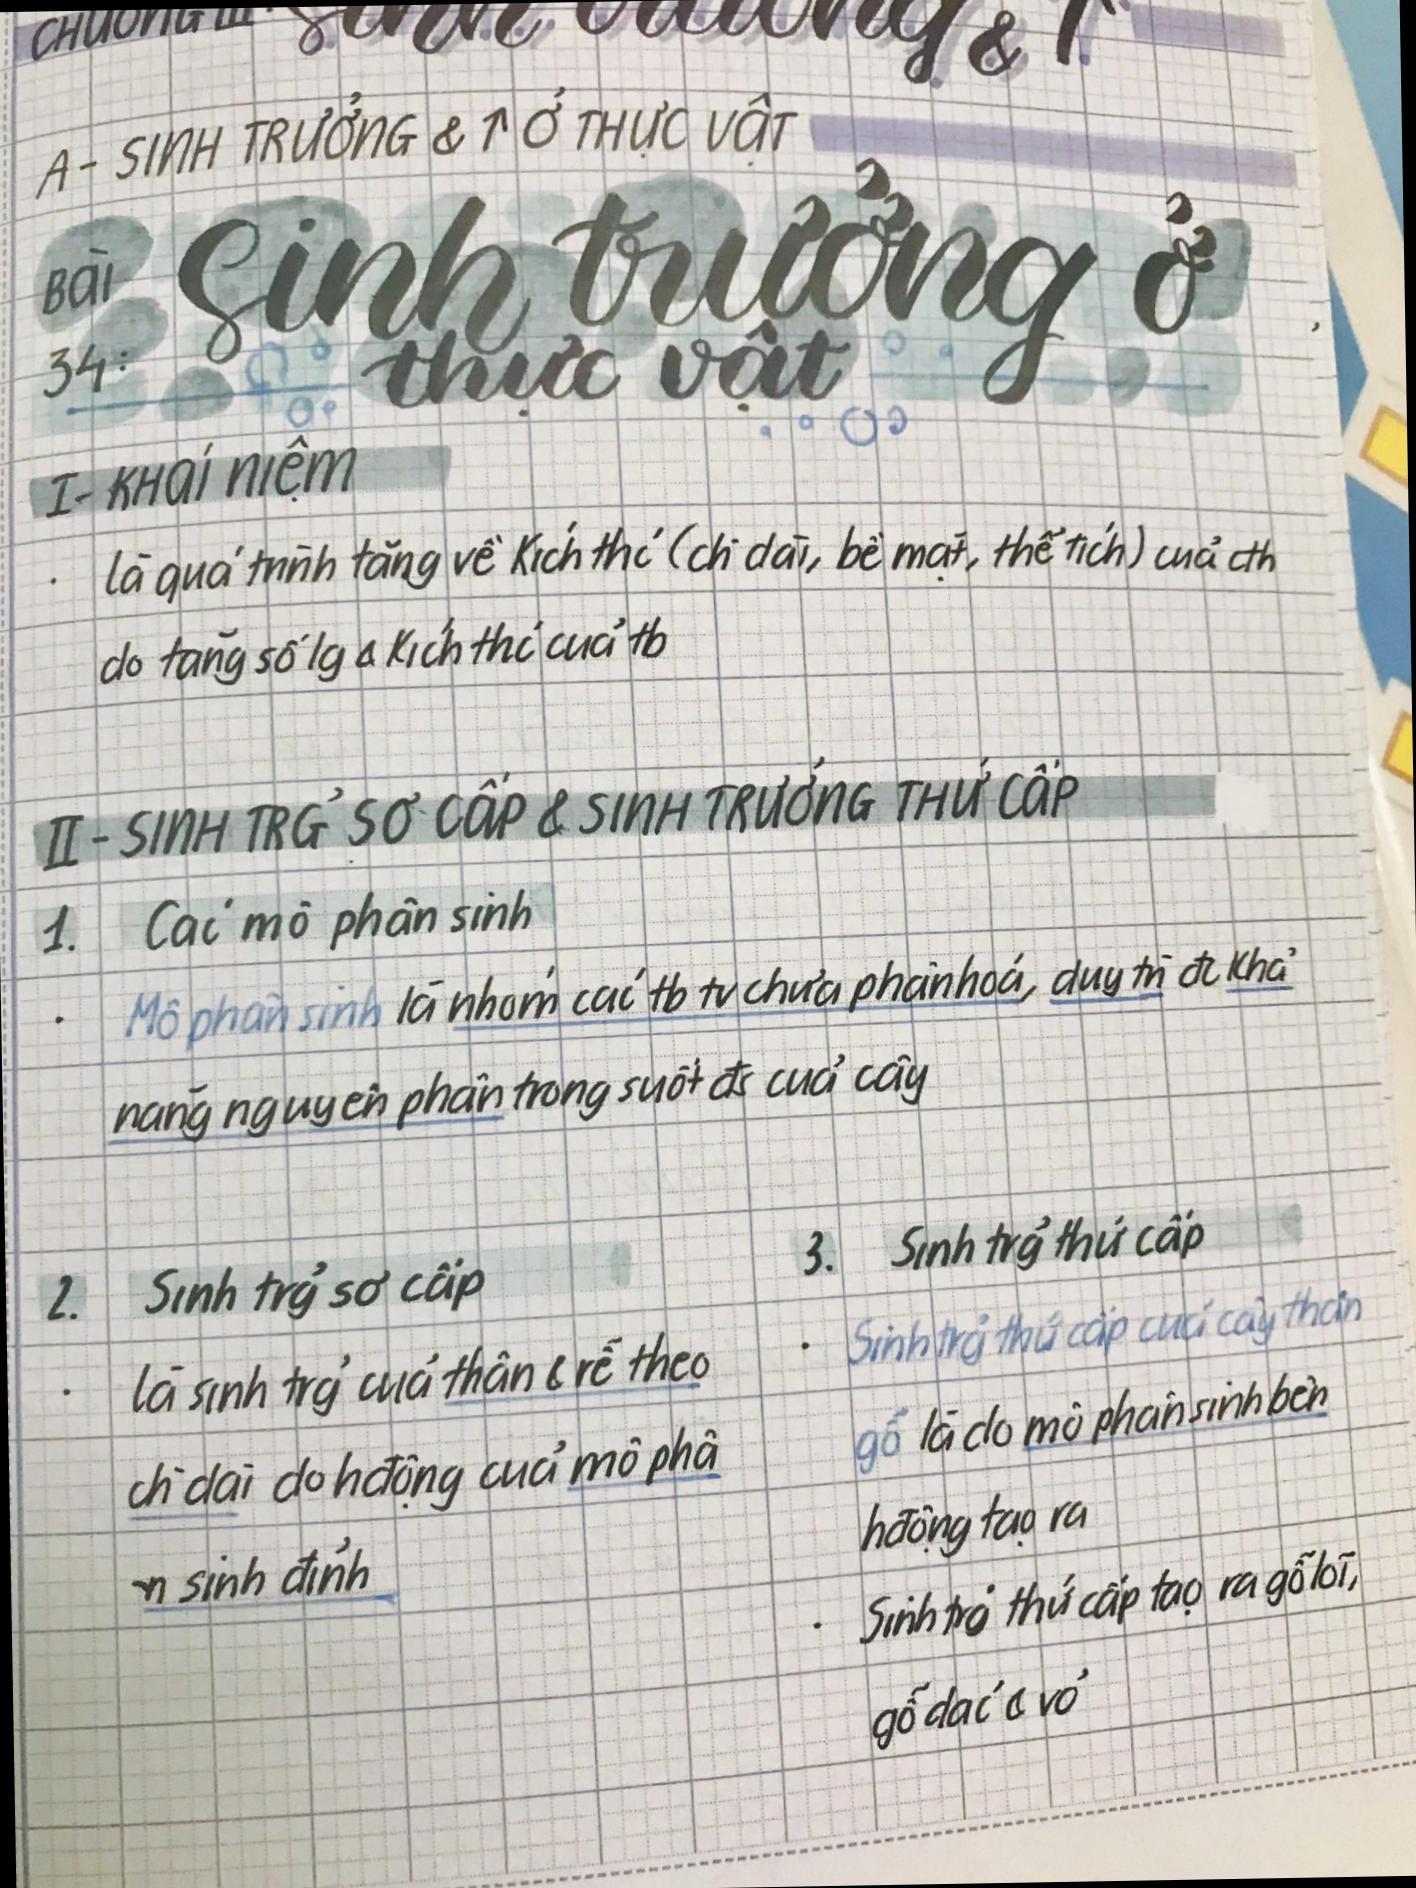 CHƯƠNG III: Sinh trưởng & ↑
A - SINH TRƯỞNG & ↑ Ở THỰC VẬT
BÀI 34: Sinh trưởng ở
thực vật
I - KHÁI NIỆM
· là quá trình tăng về kích thć (ch` dài, bề mặt, thể tích) của cth
do tăng số lg & kích thć của tb
II - SINH TRG̉ SƠ CẤP & SINH TRƯỞNG THỨ CẤP
1. Các mô phân sinh
· Mô phân sinh là nhóm các tb tv chưa phân hoá, duy trì đc khả
năng nguyên phân trong suốt đs của cây
2. Sinh trg̉ sơ cấp
· là sinh trg̉ của thân & rễ theo
ch` dài do hđộng của mô phâ
n sinh đỉnh
3. Sinh trg̉ thứ cấp
· Sinh trg̉ thứ cấp của cây thân
gỗ là do mô phân sinh bên
hđộng tạo ra
· Sinh trg̉ thứ cấp tạo ra gỗ lõi,
gỗ dác & vỏ